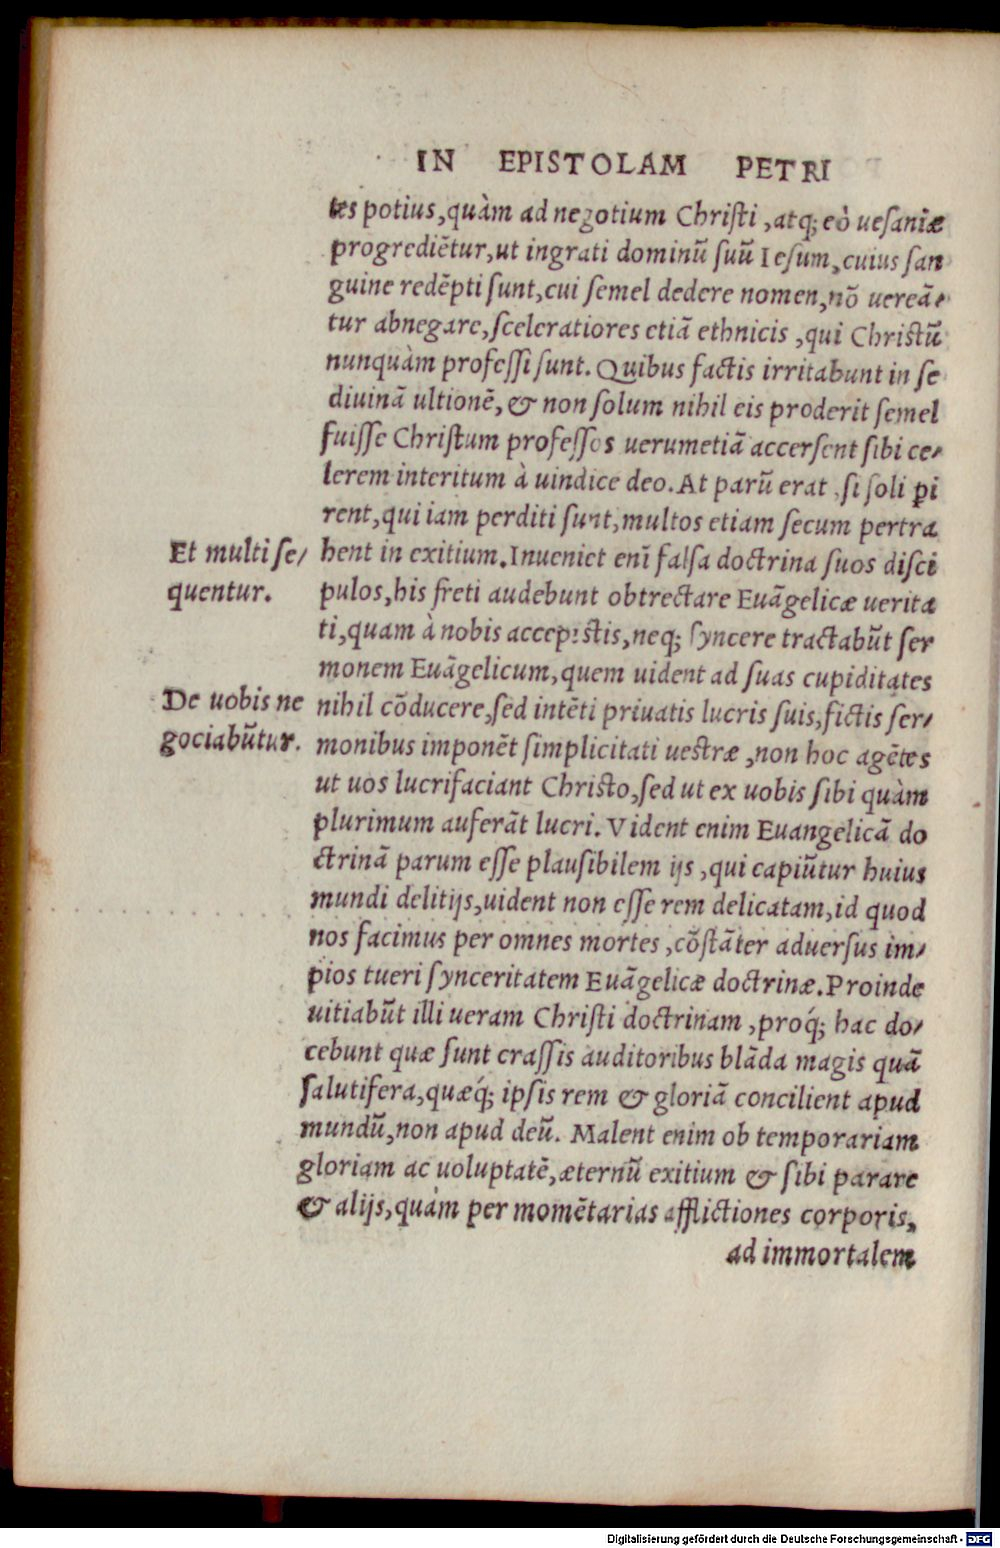 IN EPISTOLAM PETRI
tes potius, quàm ad negotium Christi, atq; eò uesaniæ
progrediẽtur, ut ingrati dominũ suũ Iesum, cuius san
guine redẽpti sunt, cui semel dedere nomen, nõ uereã-
tur abnegare, sceleratiores etiã ethnicis, qui Christũ
nunquàm professi sunt. Quibus factis irritabunt in se
diuinã ultionẽ, & non solum nihil eis proderit semel
fuisse Christum professos uerumetiã accersent sibi ce-
lerem interitum à uindice deo. At parũ erat, si soli ꝑi
rent, qui iam perditi sunt, multos etiam secum pertra
hent in exitium. Inueniet enĩ falsa doctrina suos disci
pulos, his freti audebunt obtrectare Euãgelicæ uerita
ti, quam à nobis accepistis, neq; syncere tractabũt ser
monem Euãgelicum, quem uident ad suas cupiditates
nihil cõducere, sed intẽti priuatis lucris suis, fictis ser-
monibus imponẽt simplicitati uestræ, non hoc agẽtes
ut uos lucrifaciant Christo, sed ut ex uobis sibi quàm
plurimum auferãt lucri. Vident enim Euangelicã do
ctrinã parum esse plausibilem ijs, qui capiũtur huius
mundi delitijs, uident non esse rem delicatam, id quod
nos facimus per omnes mortes, cõstãter aduersus im-
pios tueri synceritatem Euãgelicæ doctrinæ. Proinde
uitiabũt illi ueram Christi doctrinam, proq́; hac do-
cebunt quæ sunt crassis auditoribus blãda magis quã
salutifera, quæq́; ipsis rem & gloriã concilient apud
mundũ, non apud deũ. Malent enim ob temporariam
gloriam ac uoluptatẽ, æternũ exitium & sibi parare
& alijs, quàm per momẽtarias afflictiones corporis,
ad immortalem
Et multi se-
quentur.
De uobis ne
gociabũtur.
Digitalisierung gefördert durch die Deutsche Forschungsgemeinschaft - DFG